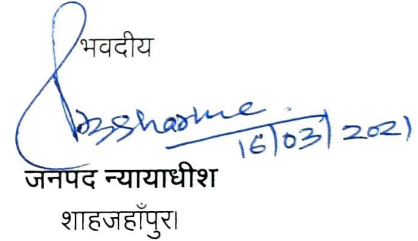 भवदीय
16/03/2021
जनपद न्यायाधीश
शाहजहाँपुर।